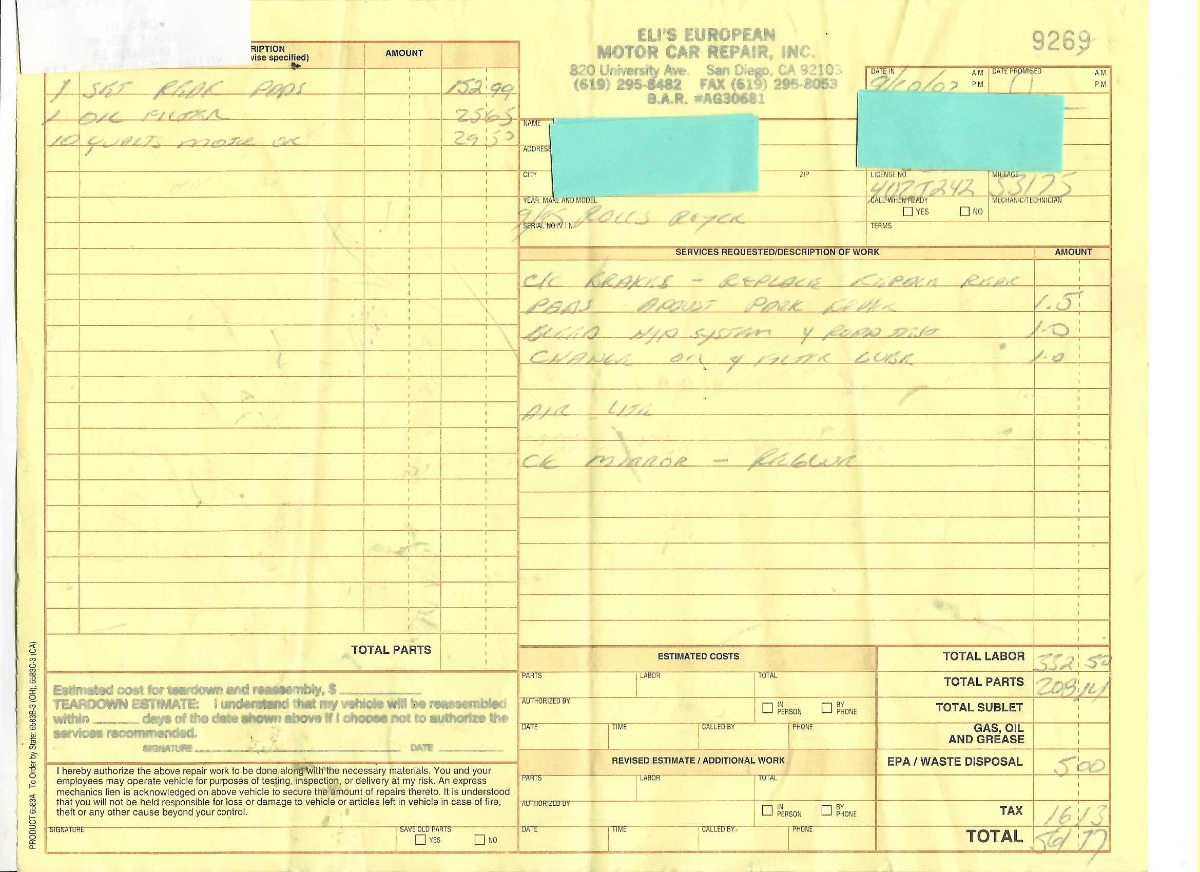 RIPTION
(wise specified)
AMOUNT
1 SET REAR PADS 152 99
1 OIL FILTER 25 65
10 QUARTS MOTOR OIL 29 50
TOTAL PARTS
Estimated cost for teardown and reassembly, $
TEARDOWN ESTIMATE: I understand that my vehicle will be reassembled
within days of the date shown above if I choose not to authorize the
services recommended.
SIGNATURE DATE
I hereby authorize the above repair work to be done along with the necessary materials. You and your
employees may operate vehicle for purposes of testing, inspection, or delivery at my risk. An express
mechanics lien is acknowledged on above vehicle to secure the amount of repairs thereto. It is understood
that you will not be held responsible for loss or damage to vehicle or articles left in vehicle in case of fire,
theft or any other cause beyond your control.
SIGNATURE SAVE OLD PARTS
YES NO
PRODUCT 6583A To Order by State: 6583B-3 (OH), 6583C-3 (CA)
ELI'S EUROPEAN
MOTOR CAR REPAIR, INC.
820 University Ave. San Diego, CA 92103
(619) 295-8482 FAX (619) 295-8053
B.A.R. #AG30681
9269
DATE IN A M P M DATE PROMISED A M P M
9/10/02
NAME
ADDRESS
CITY ZIP
LICENSE NO. MILEAGE
402T242 53175
YEAR, MAKE AND MODEL
ROLLS
CALL WHEN READY MECHANIC/TECHNICIAN
YES NO
SERIAL NO./V.I.N.
TERMS
SERVICES REQUESTED/DESCRIPTION OF WORK AMOUNT
CK BRAKES - REPLACE REAR
PADS ADJUST PARK 1.5
BLEED SYSTEM & ROAD TEST 1.0
CHANGE OIL & FILTER LUBE 1.0
AIR
CK MIRROR - REGLUE
ESTIMATED COSTS
PARTS LABOR TOTAL
AUTHORIZED BY
IN PERSON BY PHONE
DATE TIME CALLED BY PHONE
REVISED ESTIMATE / ADDITIONAL WORK
PARTS LABOR TOTAL
AUTHORIZED BY
IN PERSON BY PHONE
DATE TIME CALLED BY PHONE
TOTAL LABOR 332 50
TOTAL PARTS 208 14
TOTAL SUBLET
GAS, OIL
AND GREASE
EPA / WASTE DISPOSAL 5 00
TAX 16 13
TOTAL 561 77